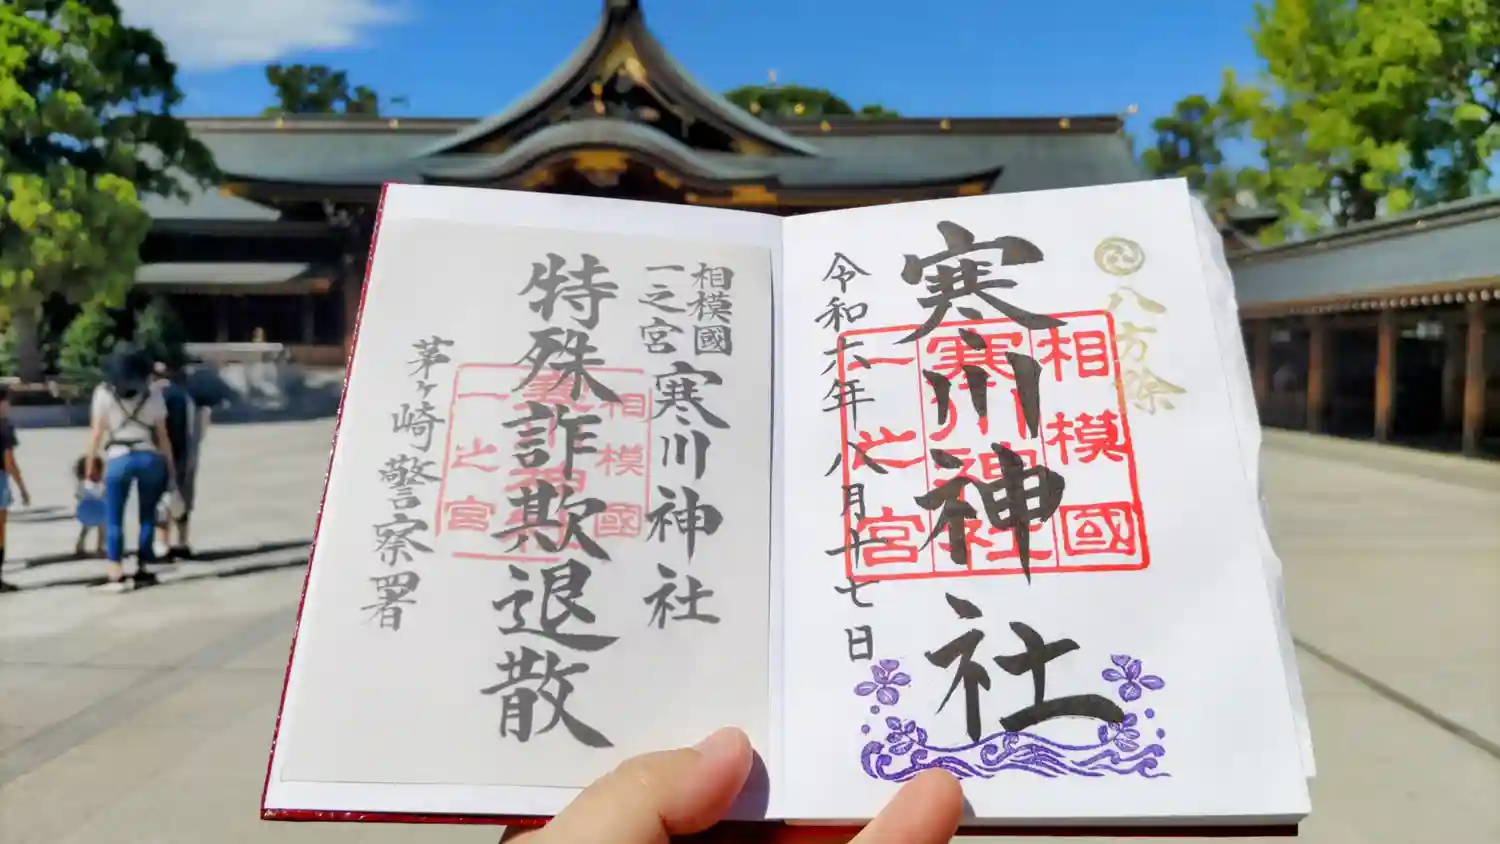 八方除
寒川神社
相模國
寒川神社
一之宮
令和六年八月十七日
相模國
一之宮
寒川神社
特殊詐欺退散
相模國
一之宮
茅ヶ崎警察署